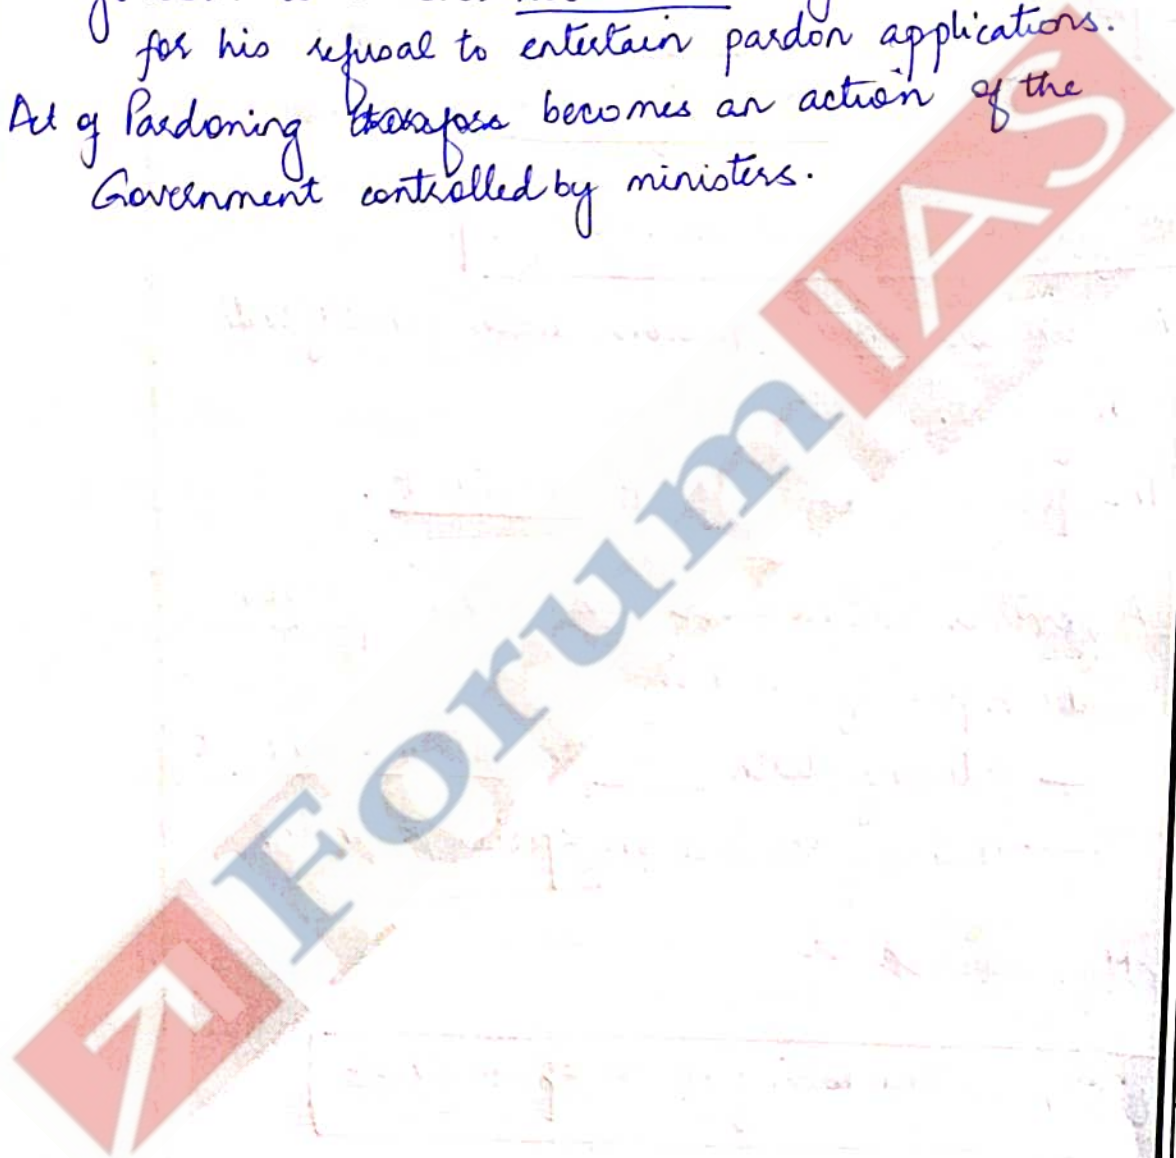 for his refusal to entertain pardon applications.
Act of Pardoning becomes an action of the
Government controlled by ministers.
Forum IAS